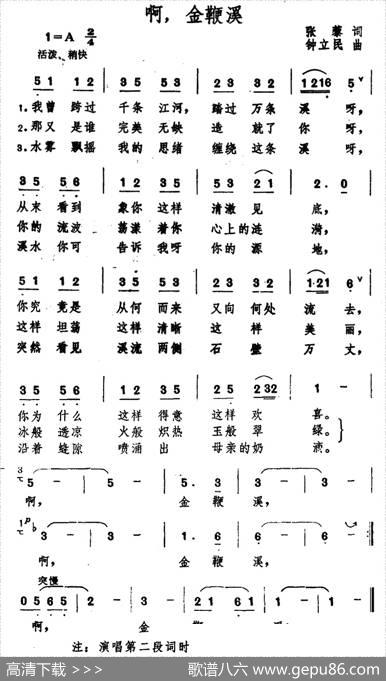 啊，金鞭溪
1=A 2/4
张藜 词
钟立民 曲
活泼、稍快
5 1 1 2 | 3 5 5 3 | 5 3 3 2 | 1 216 5 ∨ |
1.我曾 跨过 千条 江河， 踏过 万条 溪 呀，
2.那又 是谁 完美 无缺 造 就了 你 呀，
3.水雾 飘摇 我的 思绪 缠绕 这条 溪 呀，
3 5 5 6 | 1 2 3 5 | 5 3 2 1 | 2 . 0 |
从未 看到 象你 这样 清澈 见 底，
你的 流波 荡漾 着你 心上 的涟 漪，
溪水 你可 告诉 我呀 你的 源 地，
5 1 1 2 | 3 5 5 3 | 2 3 3 2 | 1·21 6 ∨ |
你究 竟是 从何 而来 又向 何处 流 去，
这样 坦荡 这样 清晰 这 样 美 丽，
突然 看见 溪流 两侧 石 壁 万 丈，
3 5 5 6 | 1 2 3 5 | 2 5 2 32 | 1 - |
你为 什么 这样 得意 这样 欢 喜。
冰般 透凉 火般 炽热 玉般 翠 绿。
沿着 缝隙 喷涌 出 母亲 的奶 滴。
5 - | 5 - | 5 . 3 | 5 - | 5 - |
啊， 金 鞭 溪，
3 - | 3 - | 1 . 6 | 3 - | 3 - |
啊， 金 鞭 溪，
突慢
啊， 金 鞭 溪。
注：演唱第二段词时
高清下载 >>>
歌谱八六 www.gepu86.com